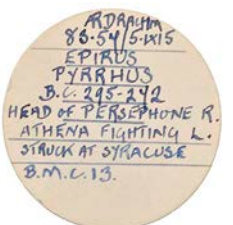 ARDRACHM
83.54/5.IX15
EPIRUS
PYRRHUS
B.C. 295-272
HEAD OF PERSEPHONE R.
ATHENA FIGHTING L.
STRUCK AT SYRACUSE
B.M.C. 13.